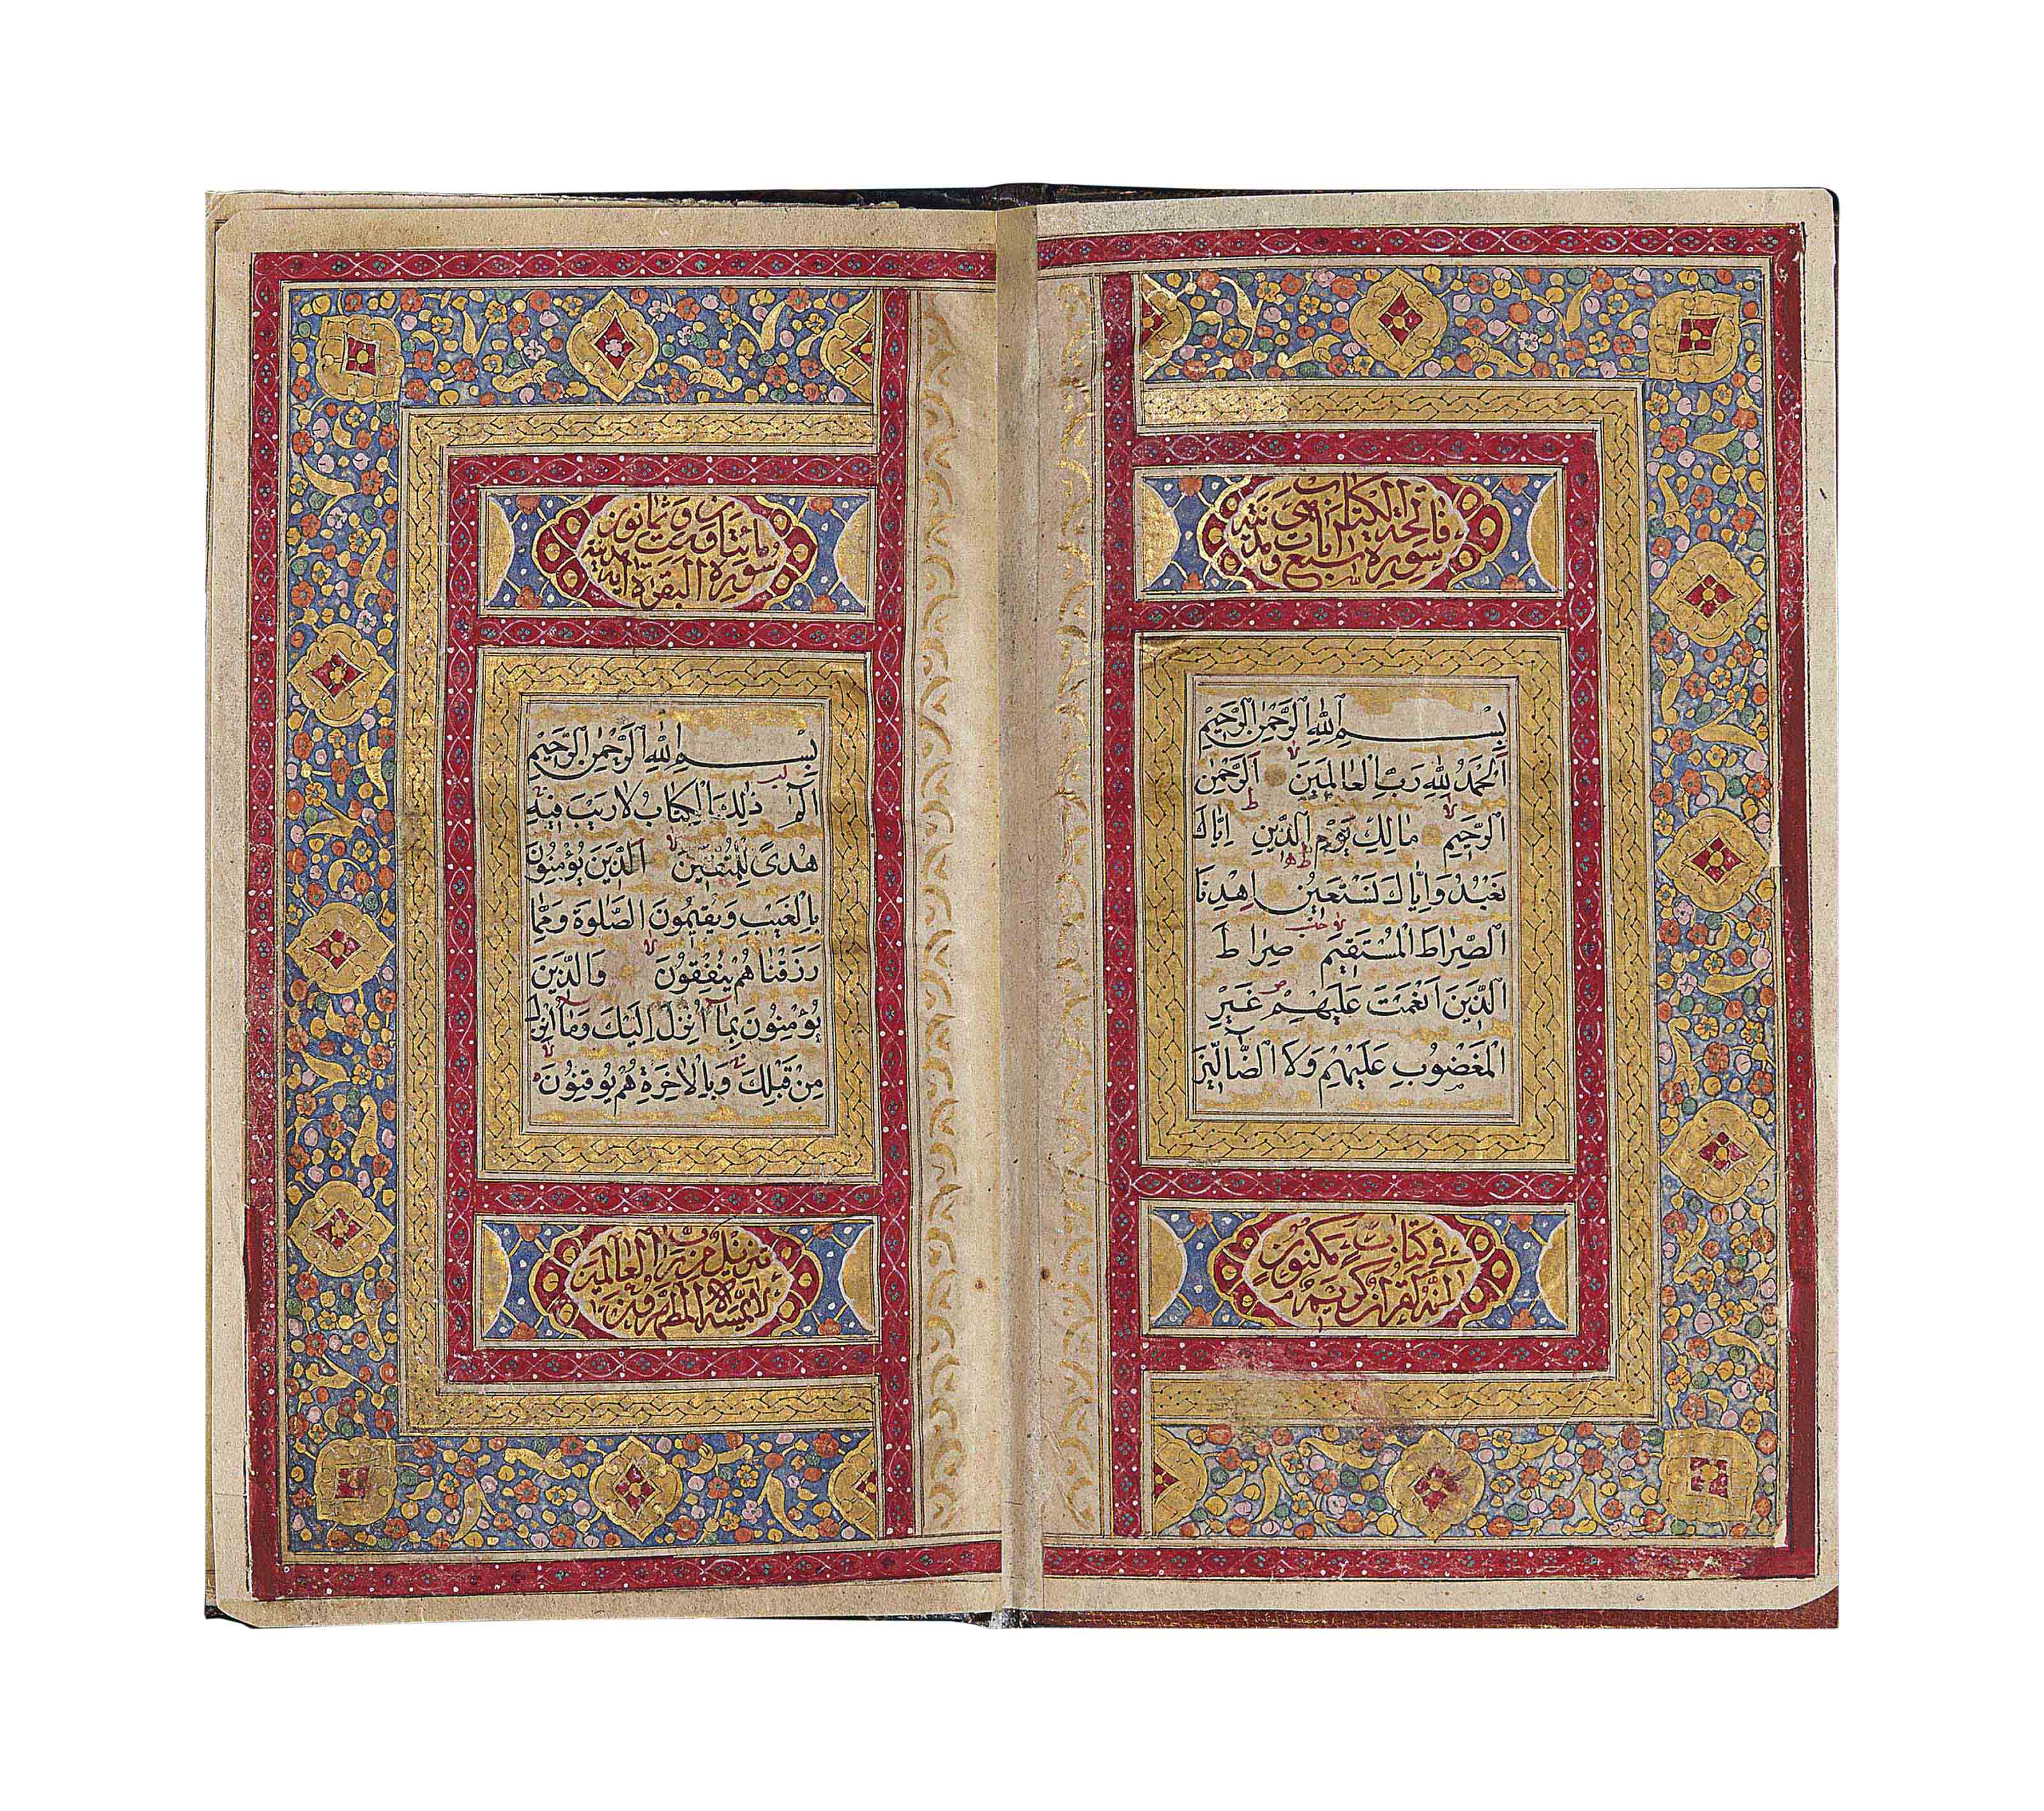 سورة فاتحة الكتاب سبع آيات
بِسْمِ اللهِ الرَّحْمٰنِ الرَّحِيْمِ
اَلْحَمْدُ لِلّٰهِ رَبِّ الْعَالَمِيْنَ اَلرَّحْمٰنِ
الرَّحِيْمِ مَالِكِ يَوْمِ الدِّيْنِ اِيَّاكَ
نَعْبُدُ وَاِيَّاكَ نَسْتَعِيْنُ اِهْدِنَا
الصِّرَاطَ الْمُسْتَقِيْمَ صِرَاطَ
الَّذِيْنَ اَنْعَمْتَ عَلَيْهِمْ غَيْرِ
الْمَغْضُوْبِ عَلَيْهِمْ وَلَا الضَّالِّيْنَ
انه لقران كريم
في كتاب مكنون
سورة البقرة مائتان وست وثمانون آية مدنية
بِسْمِ اللهِ الرَّحْمٰنِ الرَّحِيْمِ
الٓمٓ ذٰلِكَ الْكِتَابُ لَا رَيْبَ فِيْهِ
هُدًى لِلْمُتَّقِيْنَ اَلَّذِيْنَ يُؤْمِنُوْنَ
بِالْغَيْبِ وَيُقِيْمُوْنَ الصَّلٰوةَ وَمِمَّا
رَزَقْنَاهُمْ يُنْفِقُوْنَ وَالَّذِيْنَ
يُؤْمِنُوْنَ بِمَآ اُنْزِلَ اِلَيْكَ وَمَآ اُنْزِلَ
مِنْ قَبْلِكَ وَبِالْاٰخِرَةِ هُمْ يُوْقِنُوْنَ
لا يمسه الا المطهرون
تنزيل من رب العالمين